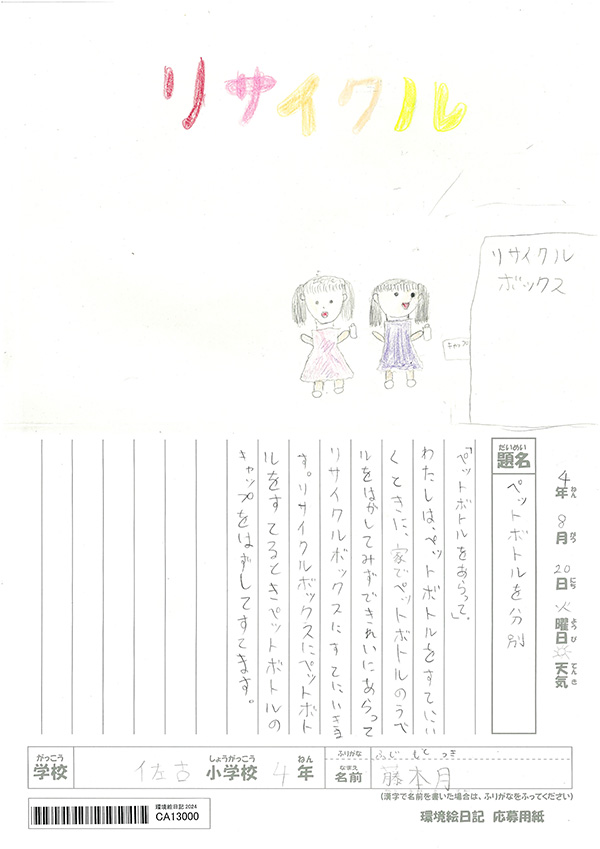 リサイクル
リサイクル
ボックス
キャップ
4年 8月 20日 火曜日 天気
ねん がつ にち ようび てんき
だいめい
題名
ペットボトルを分別
「ペットボトルをあらって。」
わたしは、ペットボトルをすてにい
くときに、家でペットボトルのラベ
ルをはがしてみずできれいにあらって
リサイクルボックスにすてにいきま
す。リサイクルボックスにペットボト
ルをすてるときペットボトルの
キャップをはずしてすてます。
がっこう
学校
佐古 小学校 4年
しょうがっこう ねん
ふりがな ふじ もと つき
なまえ
名前 藤本月
(漢字で名前を書いた場合は、ふりがなをふってください)
環境絵日記 2024
CA13000
環境絵日記 応募用紙